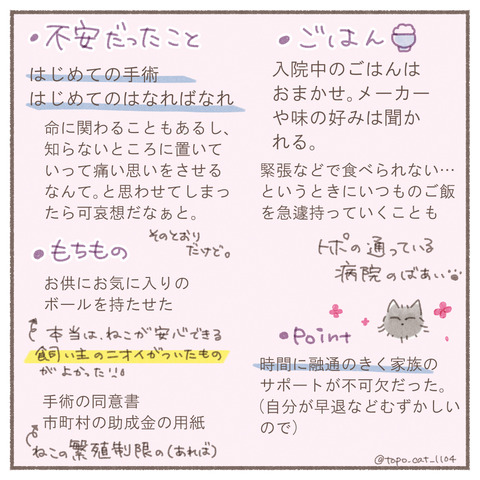 不安だったこと
はじめての手術
はじめてのはなればなれ
命に関わることもあるし、
知らないところに置いて
いって痛い思いをさせる
なんて。と思わせてしまっ
たら可哀想だなぁと。
そのとおり
だけど。
もちもの
お供にお気に入りの
ボールを持たせた
本当は、ねこが安心できる
飼い主のニオイがついたもの
がよかった!!
手術の同意書
市町村の助成金の用紙
ねこの繁殖制限の(あれば)
ごはん
入院中のごはんは
おまかせ。メーカー
や味の好みは聞か
れる。
緊張などで食べられない…
というときにいつものご飯
を急遽持っていくことも
トポの通っている
病院のばあい
Point
時間に融通のきく家族の
サポートが不可欠だった。
(自分が早退などむずかしい
ので)
@topo_cat_1104